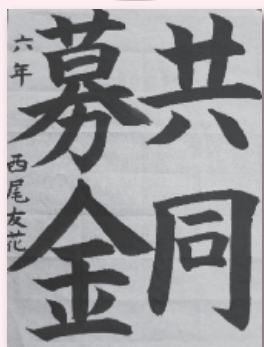 共同
募金
六年 西尾友花